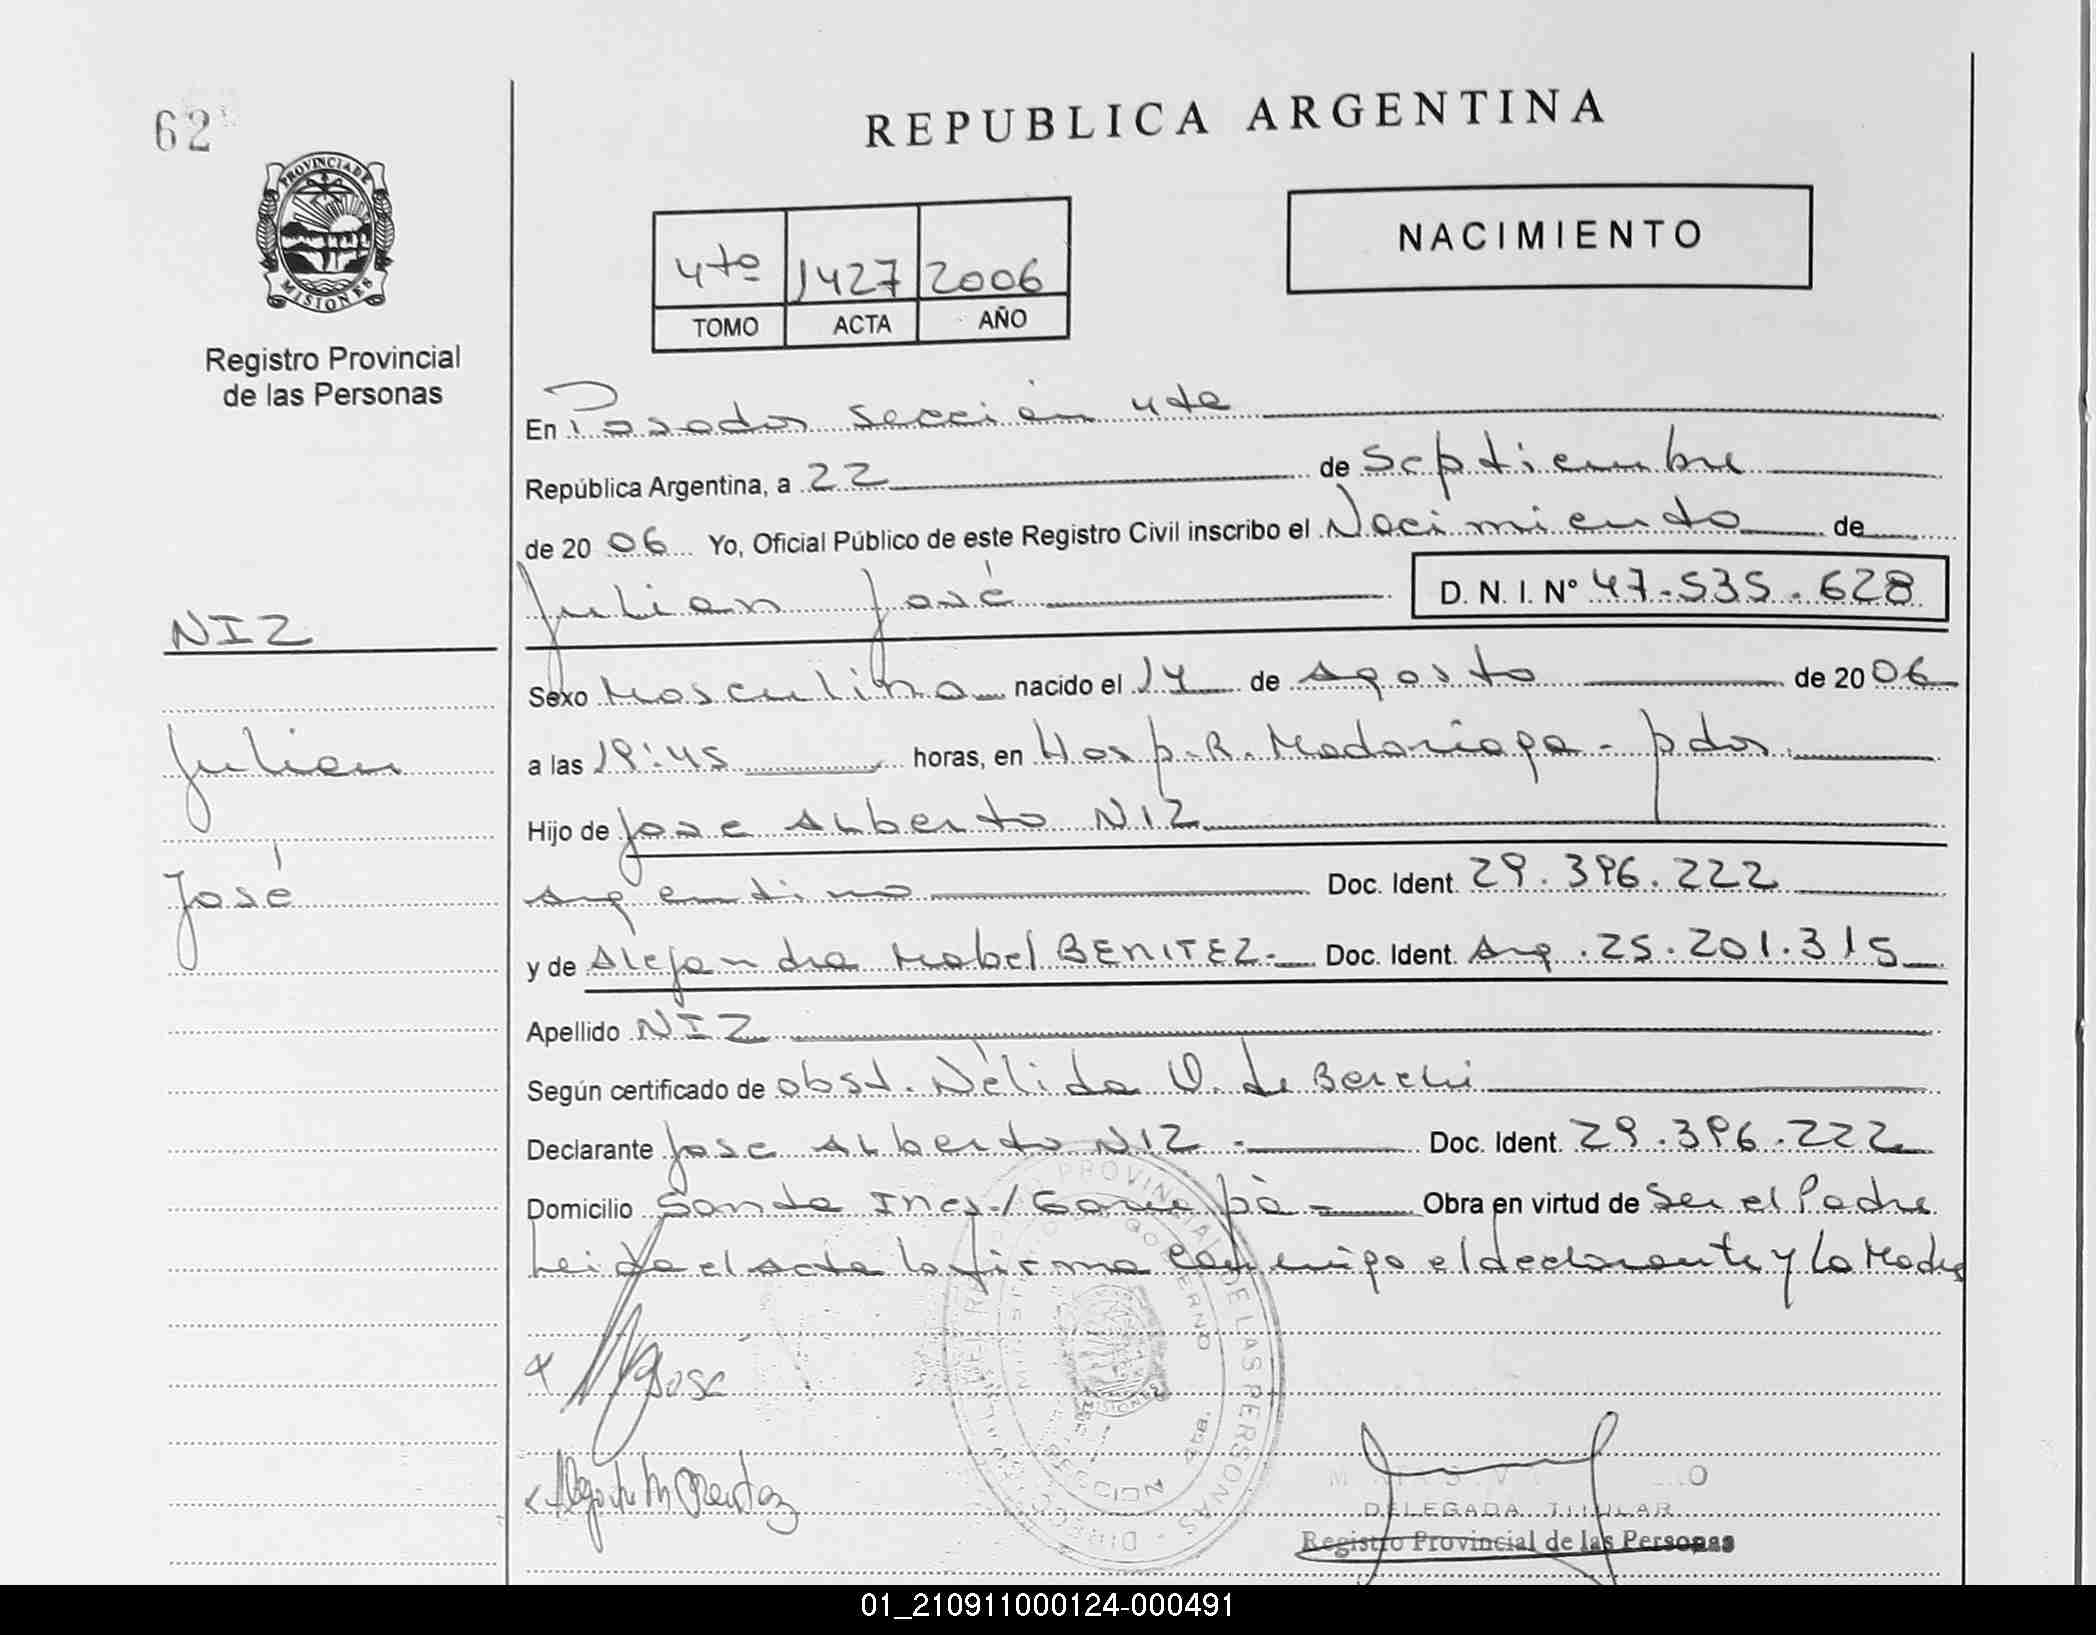 62
PROVINCIA DE
MISIONES
Registro Provincial
de las Personas
REPUBLICA ARGENTINA
NACIMIENTO
4to 1427 2006
TOMO ACTA AÑO
En Posadas sección 4ta
República Argentina, a 22 de Septiembre
de 2006 Yo, Oficial Público de este Registro Civil inscribo el Nacimiento de
Julian José D. N. I. Nº 47.535.628
NIZ
Julian
José
Sexo Masculino nacido el 14 de Agosto de 2006
a las 19:45 horas, en Hosp. R. Madariaga - pdas
Hijo de Jose Alberto NIZ
Argentino Doc. Ident. 29.396.222
y de Alejandra Mabel BENITEZ.- Doc. Ident. Arg. 25.201.315
Apellido NIZ
Según certificado de obst. Nélida de
Declarante Jose Alberto NIZ.- Doc. Ident. 29.396.222
Domicilio Santa Ines / Garupá - Obra en virtud de Ser el Padre
Leida el acta la firma conmigo el declarante y la Madre
Jose
DELEGADA TITULAR
Registro Provincial de las Personas
01_210911000124-000491